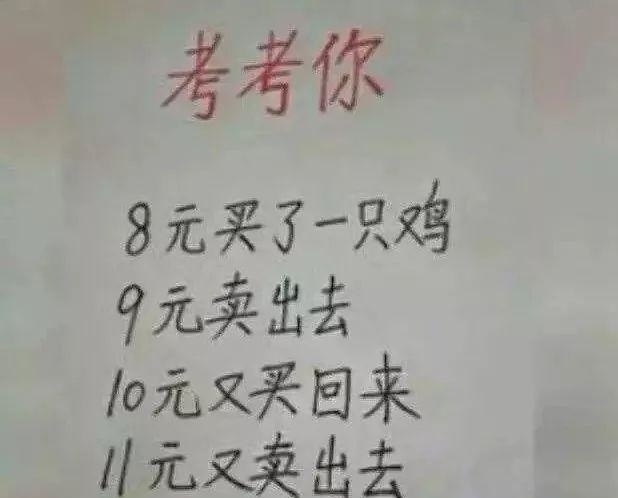 考考你
8元买了一只鸡
9元卖出去
10元又买回来
11元又卖出去